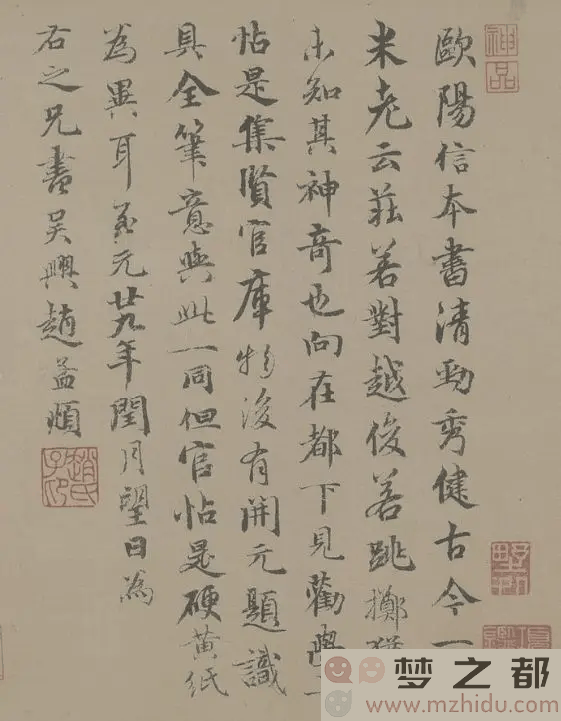 神品
歐陽信本書清勁秀健古今一
米老云莊若對越俊若跳擲猶
未知其神奇也向在都下見勸學一
帖是集賢官庫物後有開元題識
具全筆意與此一同但官帖是硬黃紙
為異耳至元廿九年閏月望日為
右之兄書吳興趙孟頫
趙氏子昂
梦之都
www.mzhidu.com